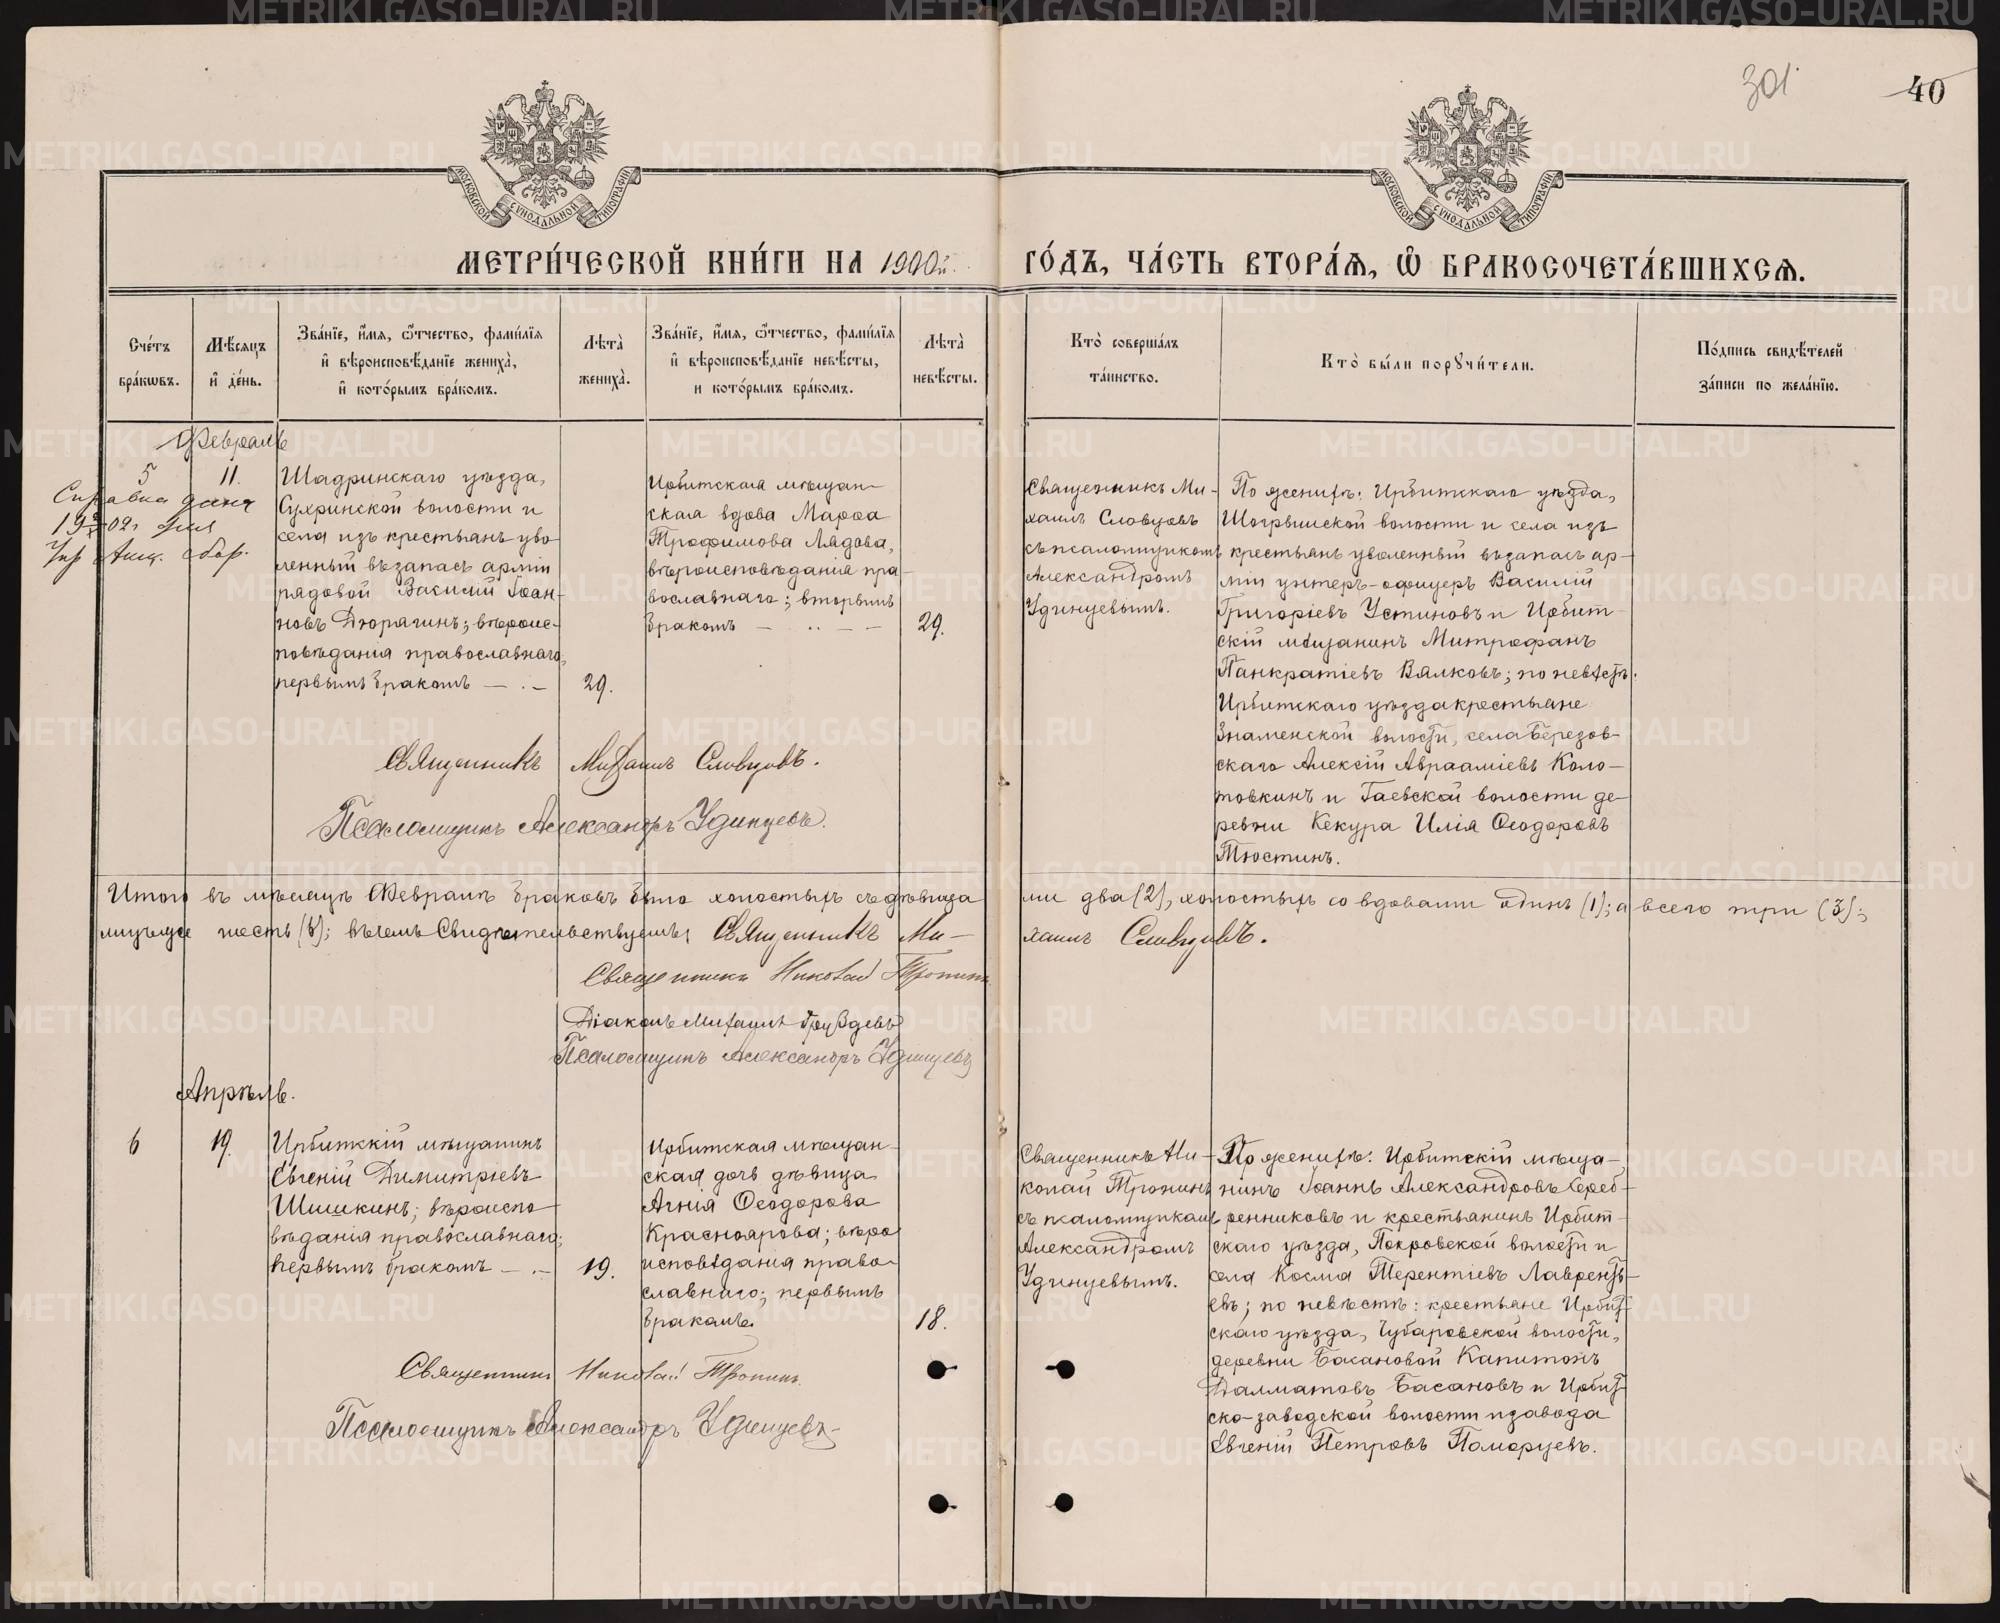 301
40
МОСКОВСКОЙ СѴНОДАЛЬНОЙ ТИПОГРАФІИ
МОСКОВСКОЙ СѴНОДАЛЬНОЙ ТИПОГРАФІИ
МЕТРИ́ЧЕСКОЙ КНИ́ГИ НА 1900й. ГО́ДЪ, ЧА́СТЬ ВТОРА́Ѧ, Ѽ БРАКОСОЧЕТА́ВШИХСѦ.
Сче́тъ бра́кѡвъ.
Мѣ́сяцъ и҆ де́нь.
Зва́нїе, и҆́мѧ, ѻ҆́тчество, фами́лїѧ и҆ вѣроисповѣ́данїе жениха̀, и҆ кото́рымъ бра́комъ.
Лѣта̀ жениха̀.
Зва́нїе, и҆́мѧ, ѻ҆́тчество, фами́лїѧ и҆ вѣроисповѣ́данїе невѣ́сты, и кото́рымъ бра́комъ.
Лѣта̀ невѣ́сты.
Кто̀ соверша́лъ та́инство.
Кто̀ бы́ли порꙋчи́тели.
По́дпись свидѣ́телей за́писи по жела́нїю.
Февраль
5
11.
Справка дана
Шадринскаго уѣзда,
Сухринской волости и
села изъ крестьянъ уво
ленный въ запасъ арміи
рядовой Василій Іоан-
новъ Дюрягинъ; вѣроис-
повѣданія православнаго,
первымъ бракомъ
29.
Ирбитская мѣщан-
ская вдова Марѳа
Трофимова Лядова,
вѣроисповѣданія пра
вославнаго; вторымъ
бракомъ
29.
Священникъ Ми-
хаилъ Словцовъ
съ псаломщикомъ
Александромъ
Удинцевымъ.
По женихѣ: Ирбитскаго уѣзда,
Шогрышской волости и села изъ
крестьянъ уволенный въ запасъ ар-
міи унтеръ-офицеръ Василій
Григоріевъ Устиновъ и Ирбит-
скій мѣщанинъ Митрофанъ
Панкратіевъ Вялковъ; по невѣстѣ:
Ирбитскаго уѣзда крестьяне
Знаменской волости, села Березов-
скаго Алексій Авраамiевъ Коло-
товкинъ и Гаевской волости де-
ревни Кекура Илія Ѳеодоровъ
Тюстинъ.
Священникъ Михаилъ Словцовъ.
Псаломщикъ Александръ Удинцевъ.
Итого въ мѣсяцѣ Февралѣ браковъ было холостыхъ съ дѣвица
ми два (2), холостыхъ со вдовами одинъ (1); а всего три (3);
лицъ же шесть (6); въ чемъ свидѣтельствуемъ: Священникъ Ми-
хаилъ Словцовъ.
Священникъ Николай Тронинъ
Діаконъ Михаилъ Груздевъ
Псаломщикъ Александръ Удинцевъ
Апрѣль.
6
19.
Ирбитскій мѣщанинъ
Евгеній Димитріевъ
Шишкинъ; вѣроиспо
вѣданія православнаго;
первымъ бракомъ
19.
Ирбитская мѣщан-
ская дочь дѣвица
Агнія Ѳеодорова
Красноярова; вѣро
исповѣданія право-
славнаго; первымъ
бракомъ.
18.
Священникъ Ни-
колай Тронинъ
съ псаломщикомъ
Александромъ
Удинцевымъ.
По женихѣ: Ирбитскій мѣща-
нинъ Іоаннъ Александровъ Сереб-
ренниковъ и крестьянинъ Ирбит-
скаго уѣзда, Покровской волости и
села Косма Терентіевъ Лаврентъ-
евъ; по невѣстѣ: крестьяне Ирбит-
скаго уѣзда, Чубаровской волости,
деревни Басановой Капитонъ
Далматовъ Басановъ и Ирбит-
ско-заводской волости и завода
Евгеній Петровъ Поморцевъ.
Священникъ Николай Тронинъ
Псаломщикъ Александръ Удинцевъ
METRIKI.GASO-URAL.RU